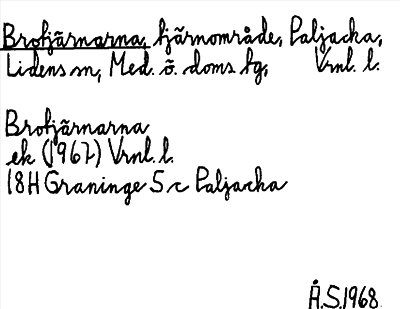 Brotjärnarna, tjärnområde, Paljacka,
Lidens sn, Med. ö. doms. tg, Vrnl. l.
Brotjärnarna
ek (1967) Vrnl. l.
18H Graninge 5 c Paljacka
Å.S. 1968